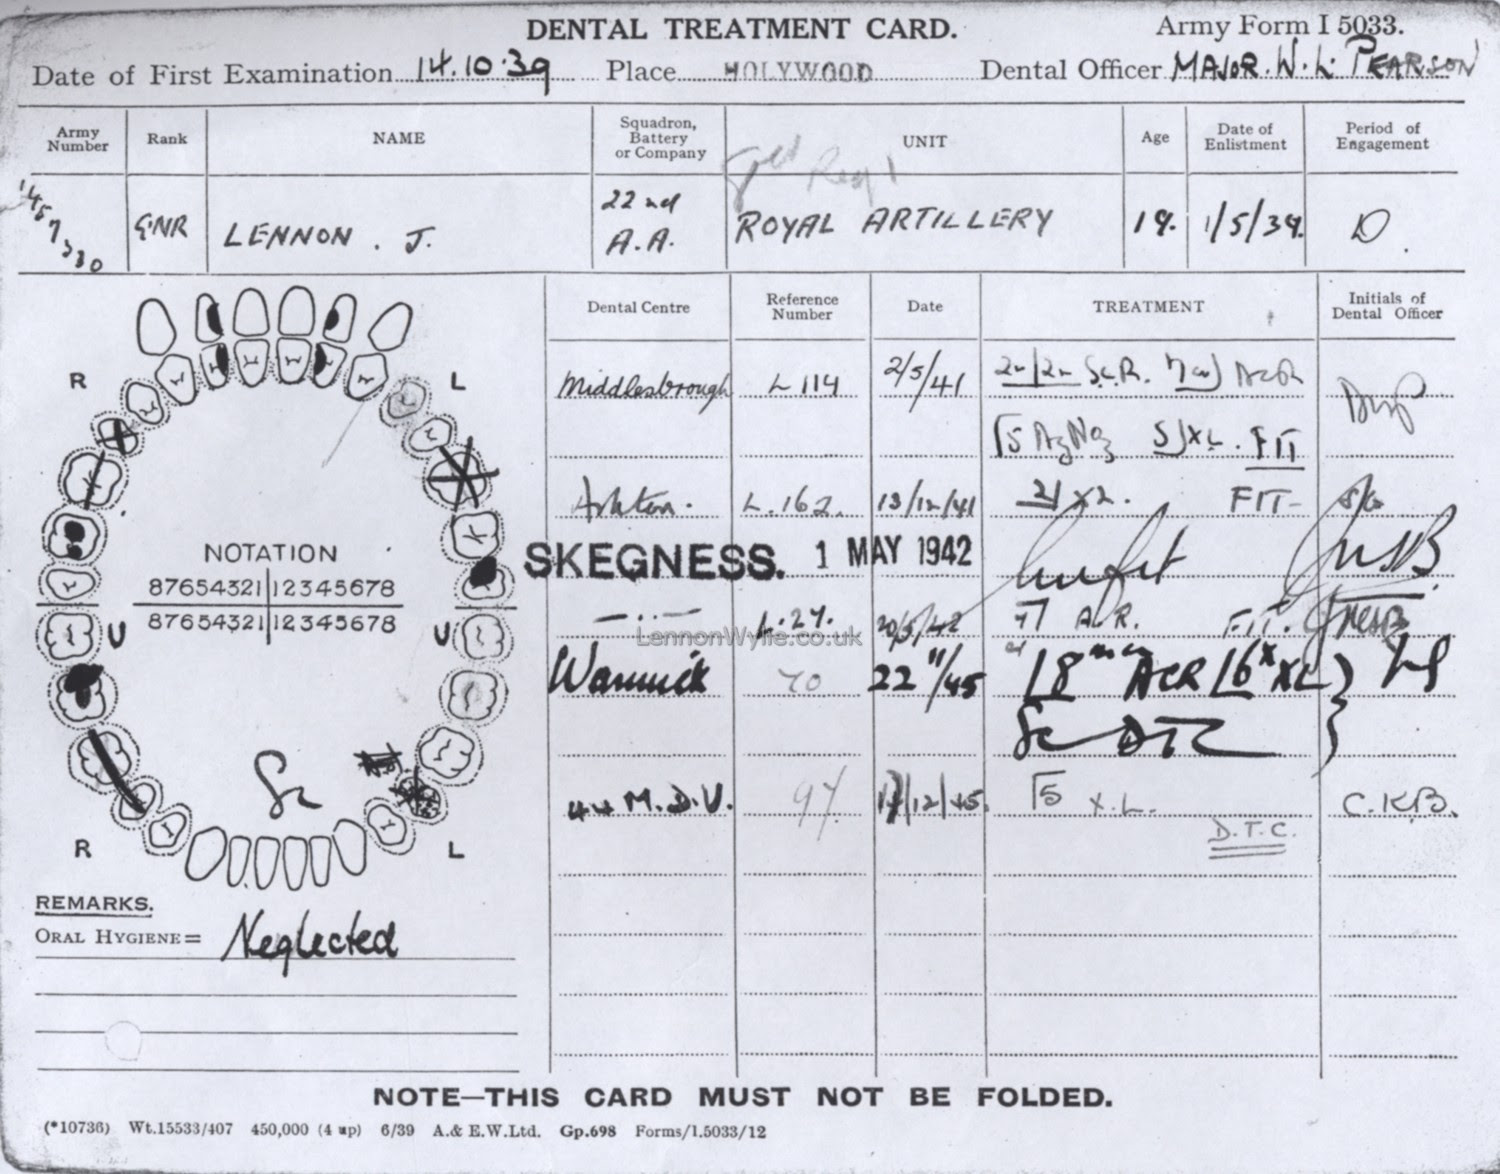 DENTAL TREATMENT CARD. Army Form I 5033.
Date of First Examination 14.10.39 Place HOLYWOOD Dental Officer MAJOR. W. L. PEARSON
Army Number Rank NAME Squadron, Battery or Company UNIT Age Date of Enlistment Period of Engagement
GNR LENNON. J. 22nd A.A. ROYAL ARTILLERY 19. 1/5/39. D.
Dental Centre Reference Number Date TREATMENT Initials of Dental Officer
R L
Middlesbrough L 114 2/5/41
5 AgNO3 5 XL. FIT
L.162. 13/12/41 2 XL. FIT
SKEGNESS. 1 MAY 1942 Unfit
NOTATION
87654321 12345678
87654321 12345678
U U
L.27. 20/5/42 7 FIT.
LennonWylie.co.uk
Warwick 70 22 11/45 8 6 XL
Sc
44 M.D.U. 97 12/45. 5 X.L. C.K.B.
D.T.C.
R L
REMARKS.
ORAL HYGIENE= Neglected
NOTE—THIS CARD MUST NOT BE FOLDED.
(*10736) Wt.15533/407 450,000 (4 up) 6/39 A.& E.W.Ltd. Gp.698 Forms/I.5033/12